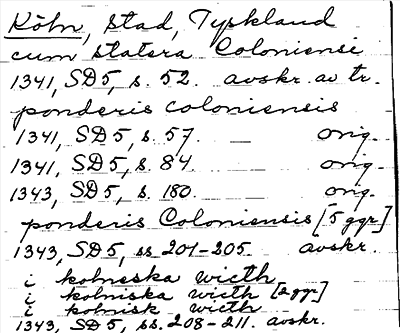 Köln, stad, Tyskland
cum statera Coloniensi
1341, SD 5, s. 52. avskr. av tr.
ponderis coloniensis
1341, SD 5, s. 57. — orig.
1341, SD 5, s. 84. — orig.
1343, SD 5, s. 180. — orig.
ponderis Coloniensis [5 ggr]
1343, SD 5, ss. 201-205. avskr.
i kolneska wicth
i kolniska wicth [2 ggr]
i kolnisk wicth
1343, SD 5, ss. 208-211. avskr.